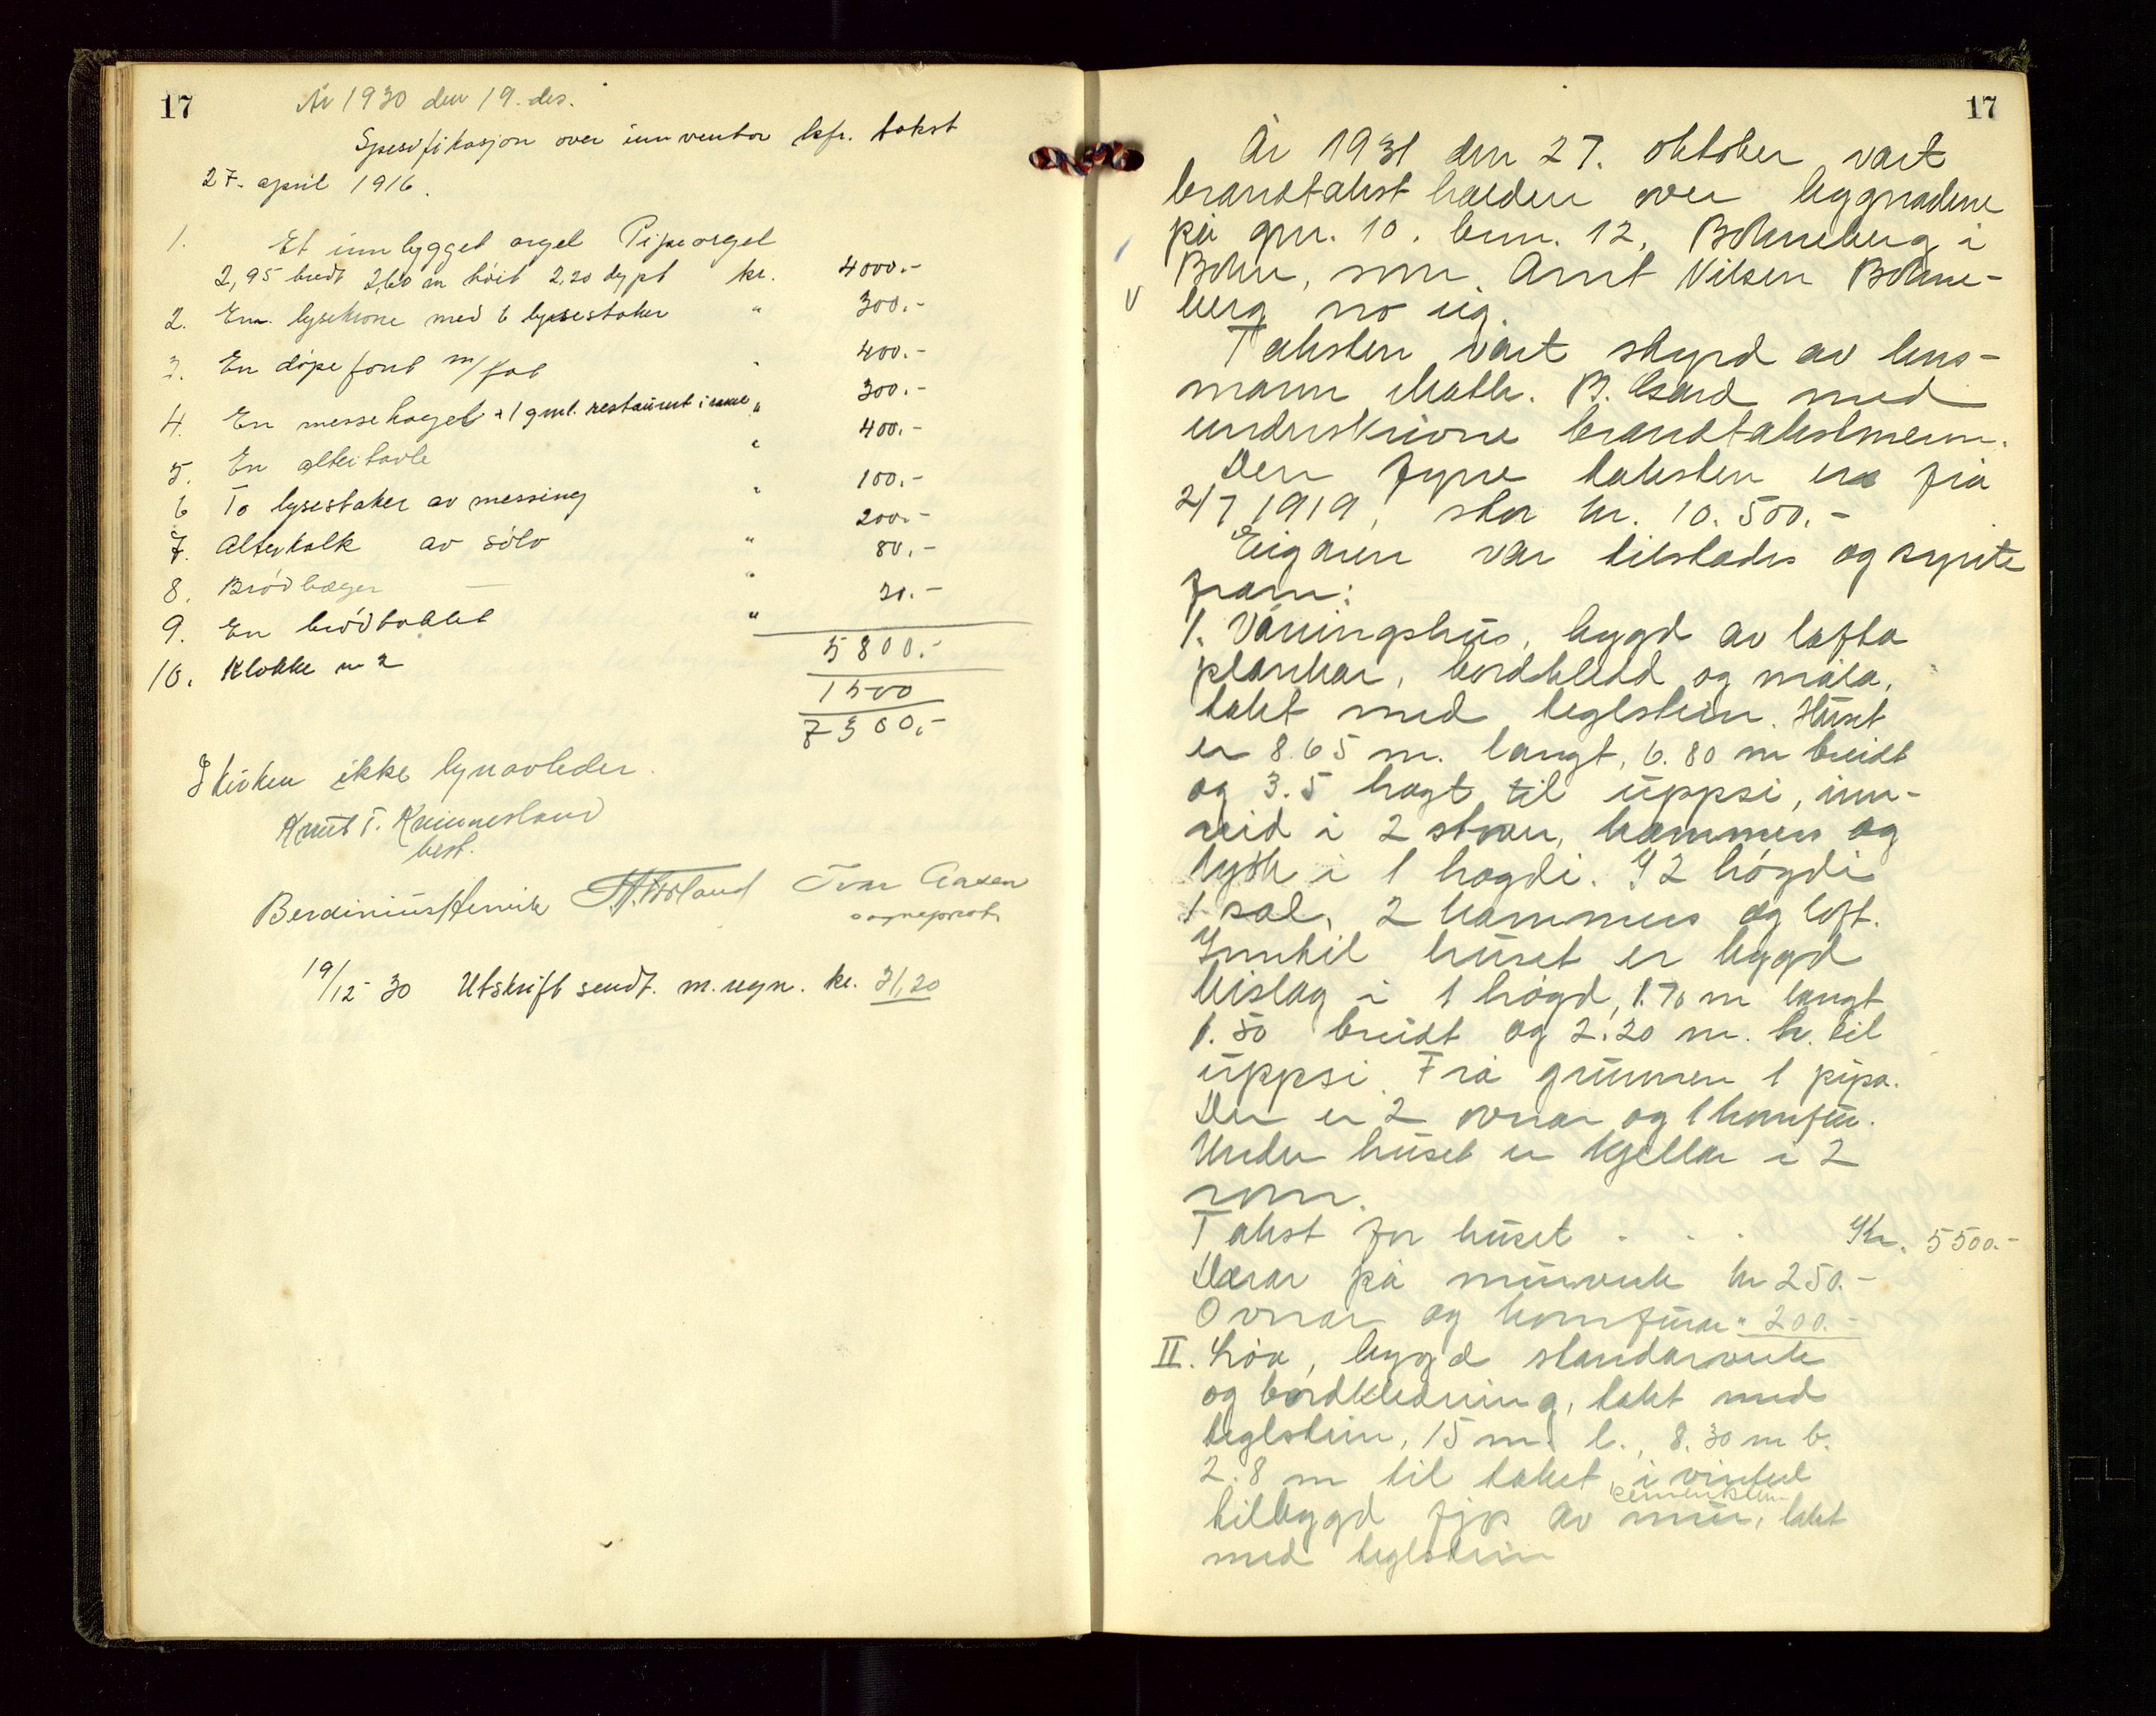 17
År 1930 den 19. des.
Spesifikasjon over innventar kfr. takst
27. april 1916.
1. Et innbygget orgel Pipeorgel
2,95 bredt 2,60 m höit 2,20 dypt kr. 4000.-
2. En lysekrone med 6 lysestaker " 300.-
3. En döpefont m/fat " 400.-
4. En messehagel + 1 gml. restaurert i " 300.-
5. En altertavle " 400.-
6 To lysestaker av messing " 100.-
7. Alterkalk av sölv " 200.-
8. Brödbæger — " 80.-
9. En brödtallet " 20.-
5800.-
10. Klokke n 2
1500
7300.-
I kirken ikke lynavleder.
Knut T. Kvinnesland
best.
Berdinius Henrik Tom Aasen
sogneprest
19/12-30 Utskrift sendt. m. regn. kr. 31,20
17
År 1931 den 27. oktober vart
brandtakst halden over bygnadene
på gnr. 10. bnr. 12, Bokneberg i
Bokn, som Arnt Nilsen Bokne-
berg no eig.
Taksten vart styrd av lens-
mann Math. B. med
underskrivne brandtakstmenn.
Den fyrre taksten er frå
2/7 1919, stor kr. 10.500.-
Eigaren var tilstades og synte
fram:
1. Våningshus, bygd av lafta
plankar, bordkledd og måla,
tekt med teglstein. Huset
er 8.65 m. langt, 6.80 m breidt
og 3.5 høgt til uppsi, inn-
reid i 2 stover, kammers og
kjøk i 1 høgdi. I 2 högdi
1 sal, 2 kammers og loft.
Inntil huset er bygd
bislag i 1 högd, 1.70 m langt
1.50 breidt og 2.20 m. h. til
uppsi. Frå grunnen 1 pipa.
Der er 2 ovnar og 1 komfur.
Under huset er kjellar i 2
rom.
Takst for huset . . . Kr. 5500.-
Derav på murverk kr 250.-
Ovnar og komfurar " 200.-
II. Löa, bygd standarverk
og bordkledning, tekt med
teglstein, 15 m. l., 8.30 m b.
2.8 m til taket, i vinkel
sementstein
tilbygd fjos av mur, tekt
med teglstein